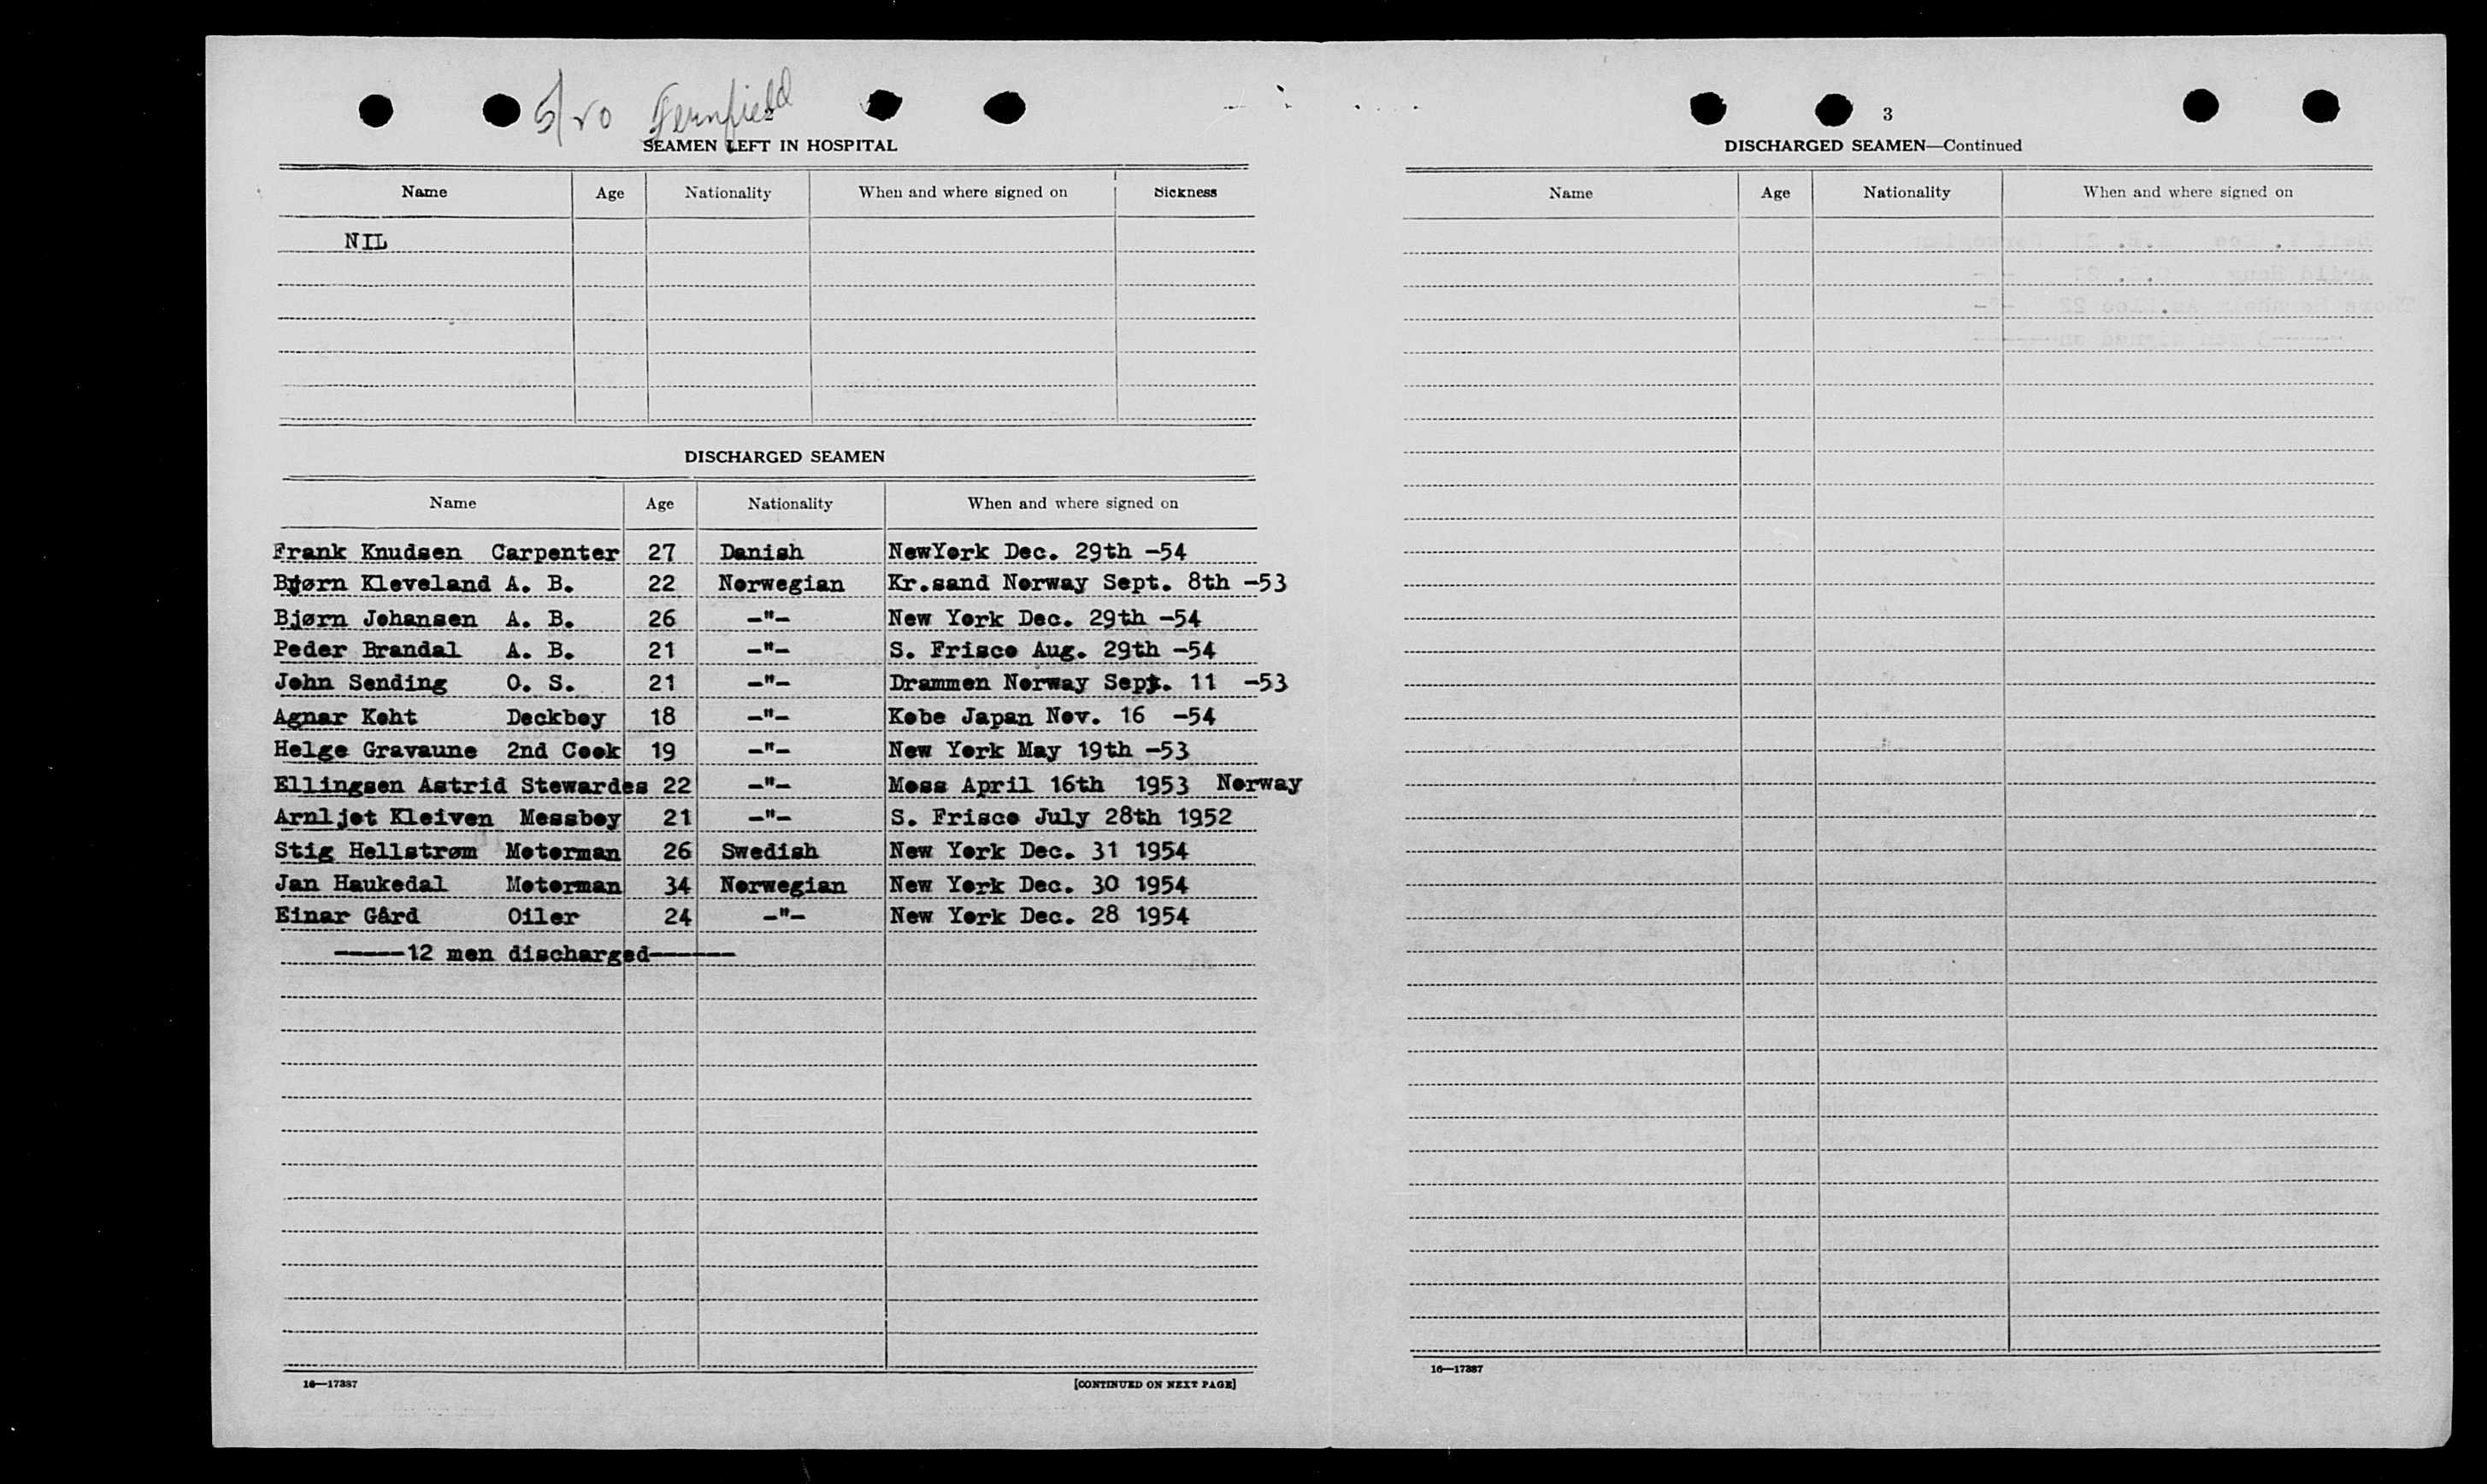 5/20 Fernfield
2
SEAMEN LEFT IN HOSPITAL
Name Age Nationality When and where signed on Sickness
NIL
DISCHARGED SEAMEN
Name Age Nationality When and where signed on
Frank Knudsen Carpenter 27 Danish NewYork Dec. 29th -54
Bjørn Kleveland A. B. 22 Norwegian Kr.sand Norway Sept. 8th -53
Bjørn Johansen A. B. 26 -"- New York Dec. 29th -54
Peder Brandal A. B. 21 -"- S. Frisco Aug. 29th -54
John Sending O. S. 21 -"- Drammen Norway Sept. 11 -53
Agnar Koht Deckboy 18 -"- Kobe Japan Nov. 16 -54
Helge Gravaune 2nd Cook 19 -"- New York May 19th -53
Ellingsen Astrid Stewardes 22 -"- Moss April 16th 1953 Norway
Arnljot Kleiven Messboy 21 -"- S. Frisco July 28th 1952
Stig Hellstrøm Motorman 26 Swedish New York Dec. 31 1954
Jan Haukedal Motorman 34 Norwegian New York Dec. 30 1954
Einar Gård Oiler 24 -"- New York Dec. 28 1954
-----12 men discharged------
16—17387 [CONTINUED ON NEXT PAGE]
3
DISCHARGED SEAMEN—Continued
Name Age Nationality When and where signed on
16—17387